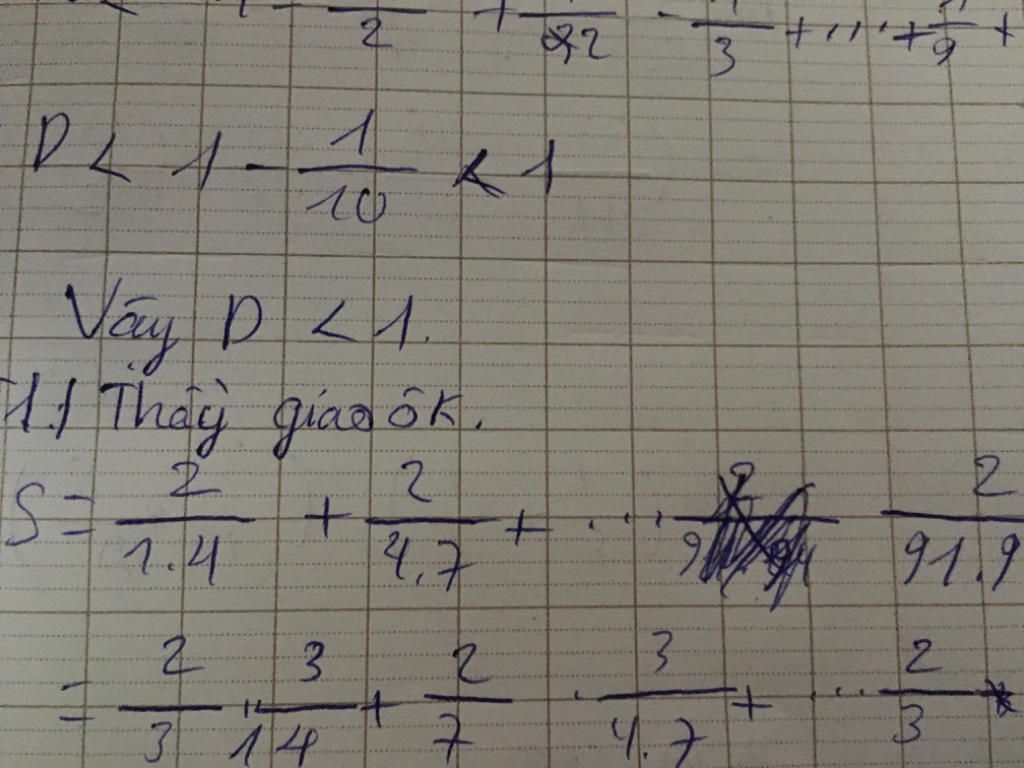 1/2 + 1/2 - 1/3 + ... + 1/9 +
D < 1 - 1/10 < 1
Vây D < 1.
1./ Thầy giáo ôk.
S = 2/1.4 + 2/4.7 + ... 2/91.9
= 2/3 . 3/1.4 + 2/7 . 3/4.7 + ... 2/3